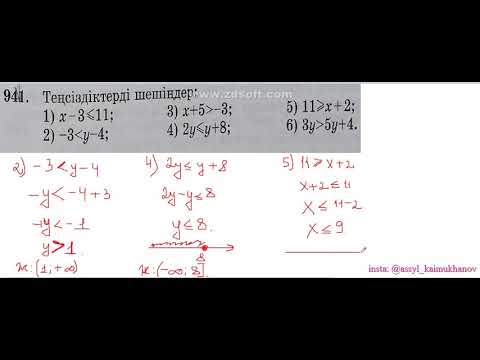 www.zdsoft.com
941. Теңсіздіктерді шешіңдер:
1) x−3⩽11;
2) −3<y−4;
3) x+5>−3;
4) 2y⩽y+8;
5) 11⩾x+2;
6) 3y>5y+4.
2) −3<y−4
−y<−4+3
−y<−1
y>1
ж: (1;+∞)
4) 2y≤y+8
2y−y≤8
y≤8.
8
ж: (−∞; 8].
5) 11≥x+2
x+2≤11
x≤11−2
x≤9
insta: @assyl_kaimukhanov